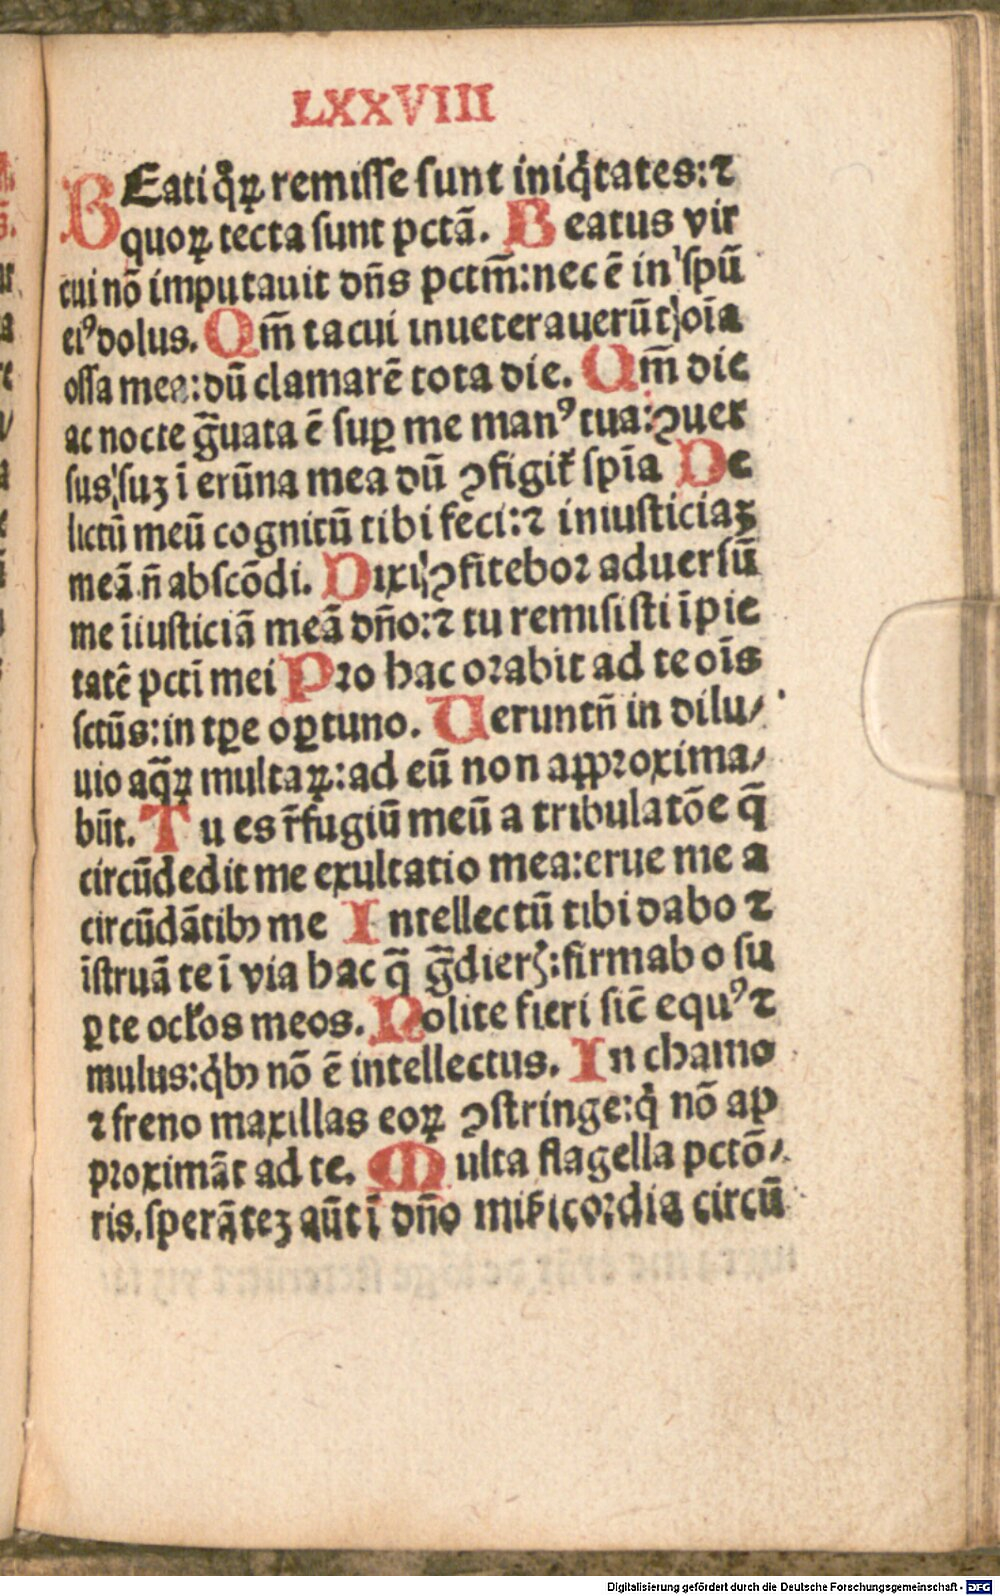 LXXVIII
BEati q̊ꝝ remisse sunt iniq̇tates: ⁊
quoꝝ tecta sunt pctā. Beatus vir
cui nō imputauit dñs pctm̄: nec ē in spū
eiꝰ dolus. Qm̄ tacui inueterauerūt oīa
ossa mea: dū clamarē tota die. Qm̄ die
ac nocte gͣuata ē suꝑ me manꝰ tua: ꝯuer
sus suꝫ ī erūna mea dū ꝯfigit᷑ spīa De
lictū meū cognitū tibi feci: ⁊ iniusticiaꝫ
meā ñ abscōdi. Dixi ꝯfitebor aduersū
me īiusticiā meā dño: ⁊ tu remisisti īpie
tatē pcti mei Pro hac orabit ad te oīs
sctūs: in tꝑe oꝑtuno. Ueruntñ in dilu/
uio aq̄ꝝ multaꝝ: ad eū non approxima/
būt. Tu es r̄fugiū meū a tribulatōe q̄
circūdedit me exultatio mea: erue me a
circūdātibꝫ me Intellectū tibi dabo ⁊
īstruā te ī via hac q̄ gͣdierꝭ: firmabo su
ꝑ te ocl̓os meos. Nolite fieri sic̄ equꝰ ⁊
mulus: q̇bꝫ nō ē intellectus. In chamo
⁊ freno maxillas eoꝝ ꝯstringe: q̇ nō ap
proximāt ad te. Multa flagella pctō/
ris, sperāteꝫ aūt ī dño mis̄icordia circū
Digitalisierung gefördert durch die Deutsche Forschungsgemeinschaft - DFG